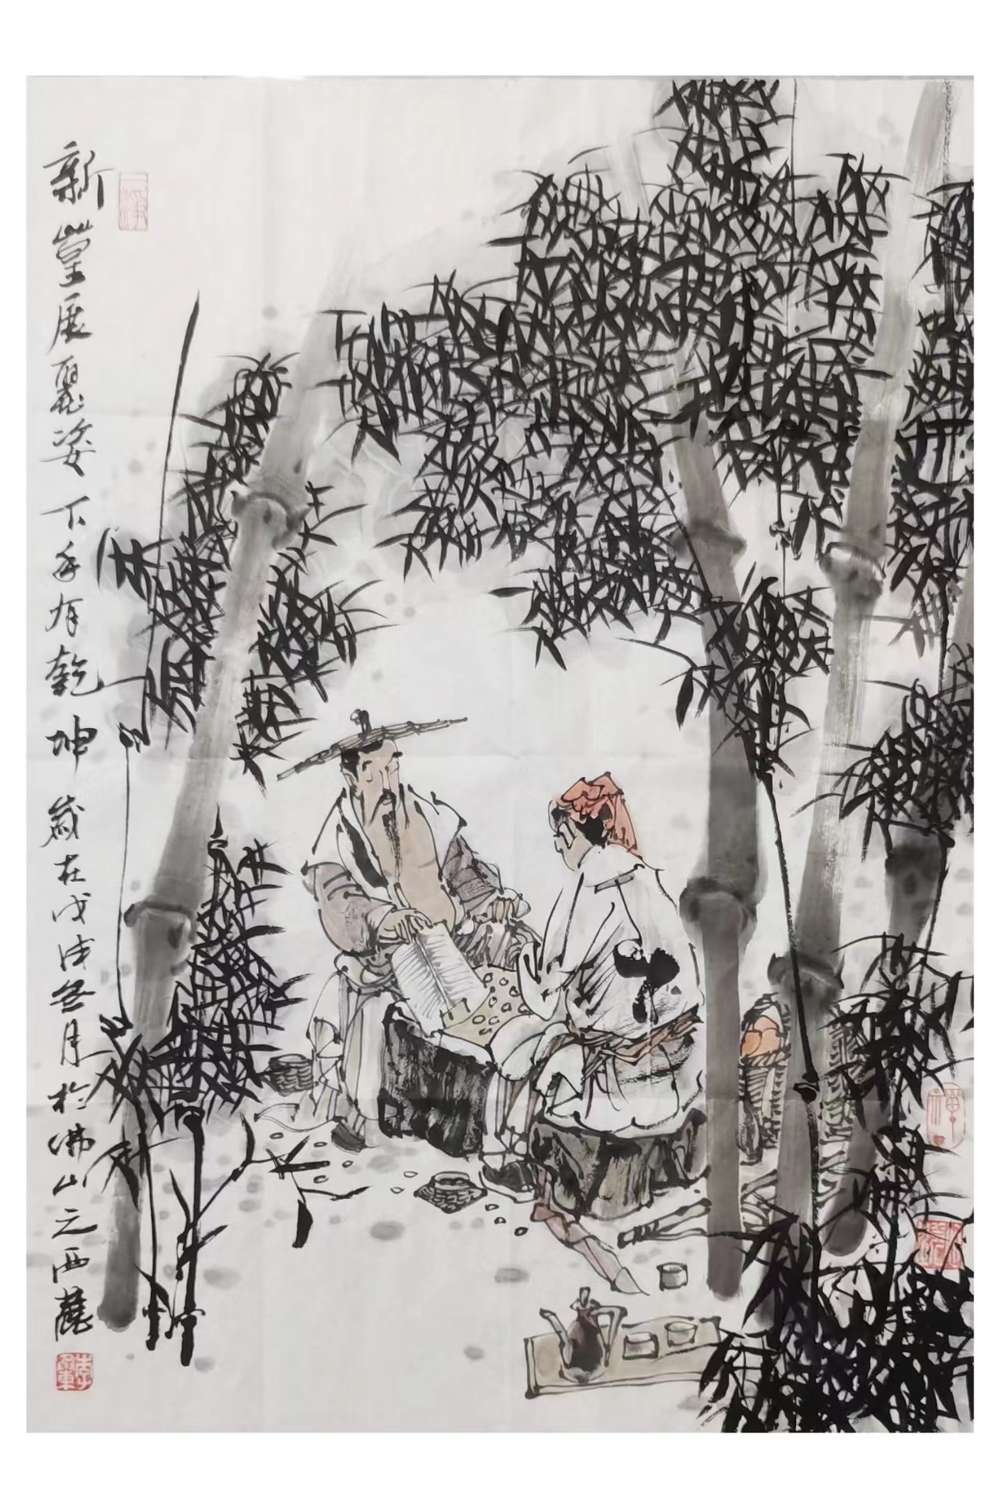 新篁展丽姿下手有乾坤 岁在戊戌冬月於佛山之西麓